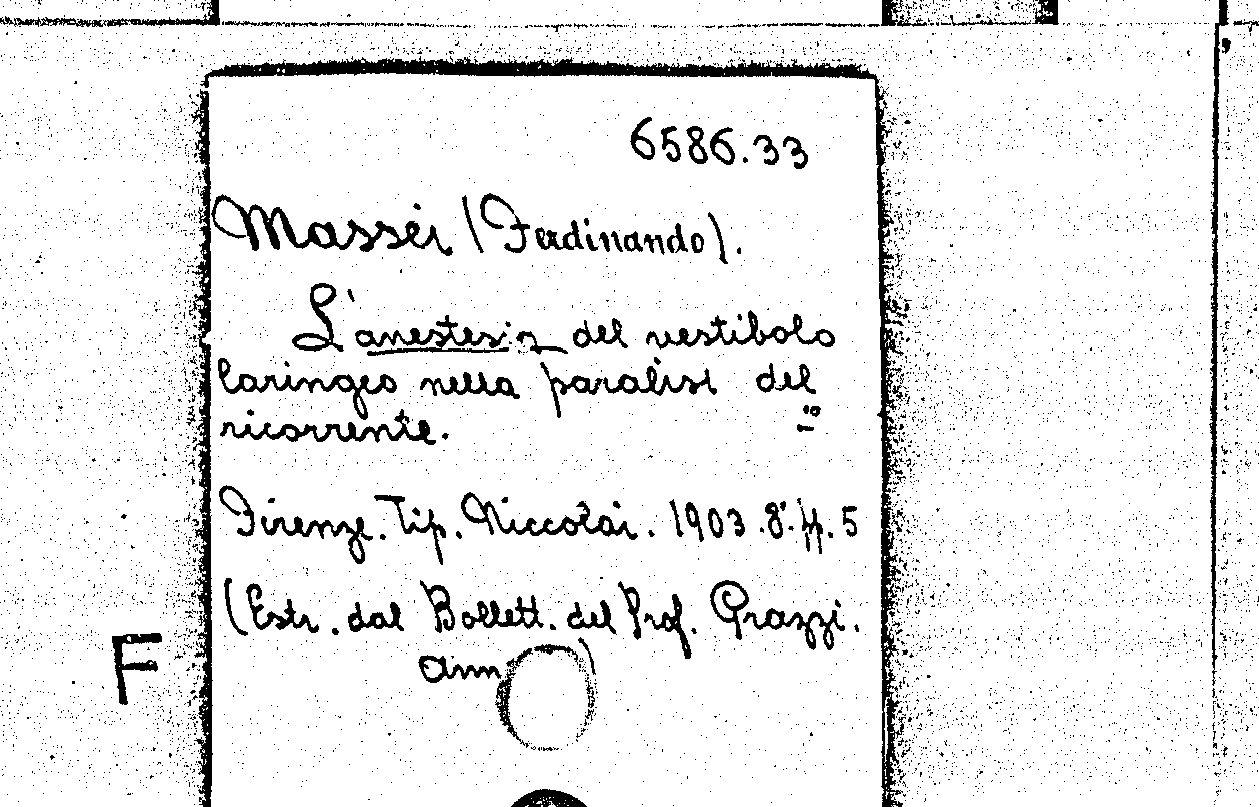 6586.33
Massei (Ferdinando).
L'anestesia del vestibolo
laringeo nella paralisi del
ricorrente.
Firenze. Tip. Niccolai. 1903.8°.pp. 5
(Estr. dal Bollett. del Prof. Grazzi.
F
ann